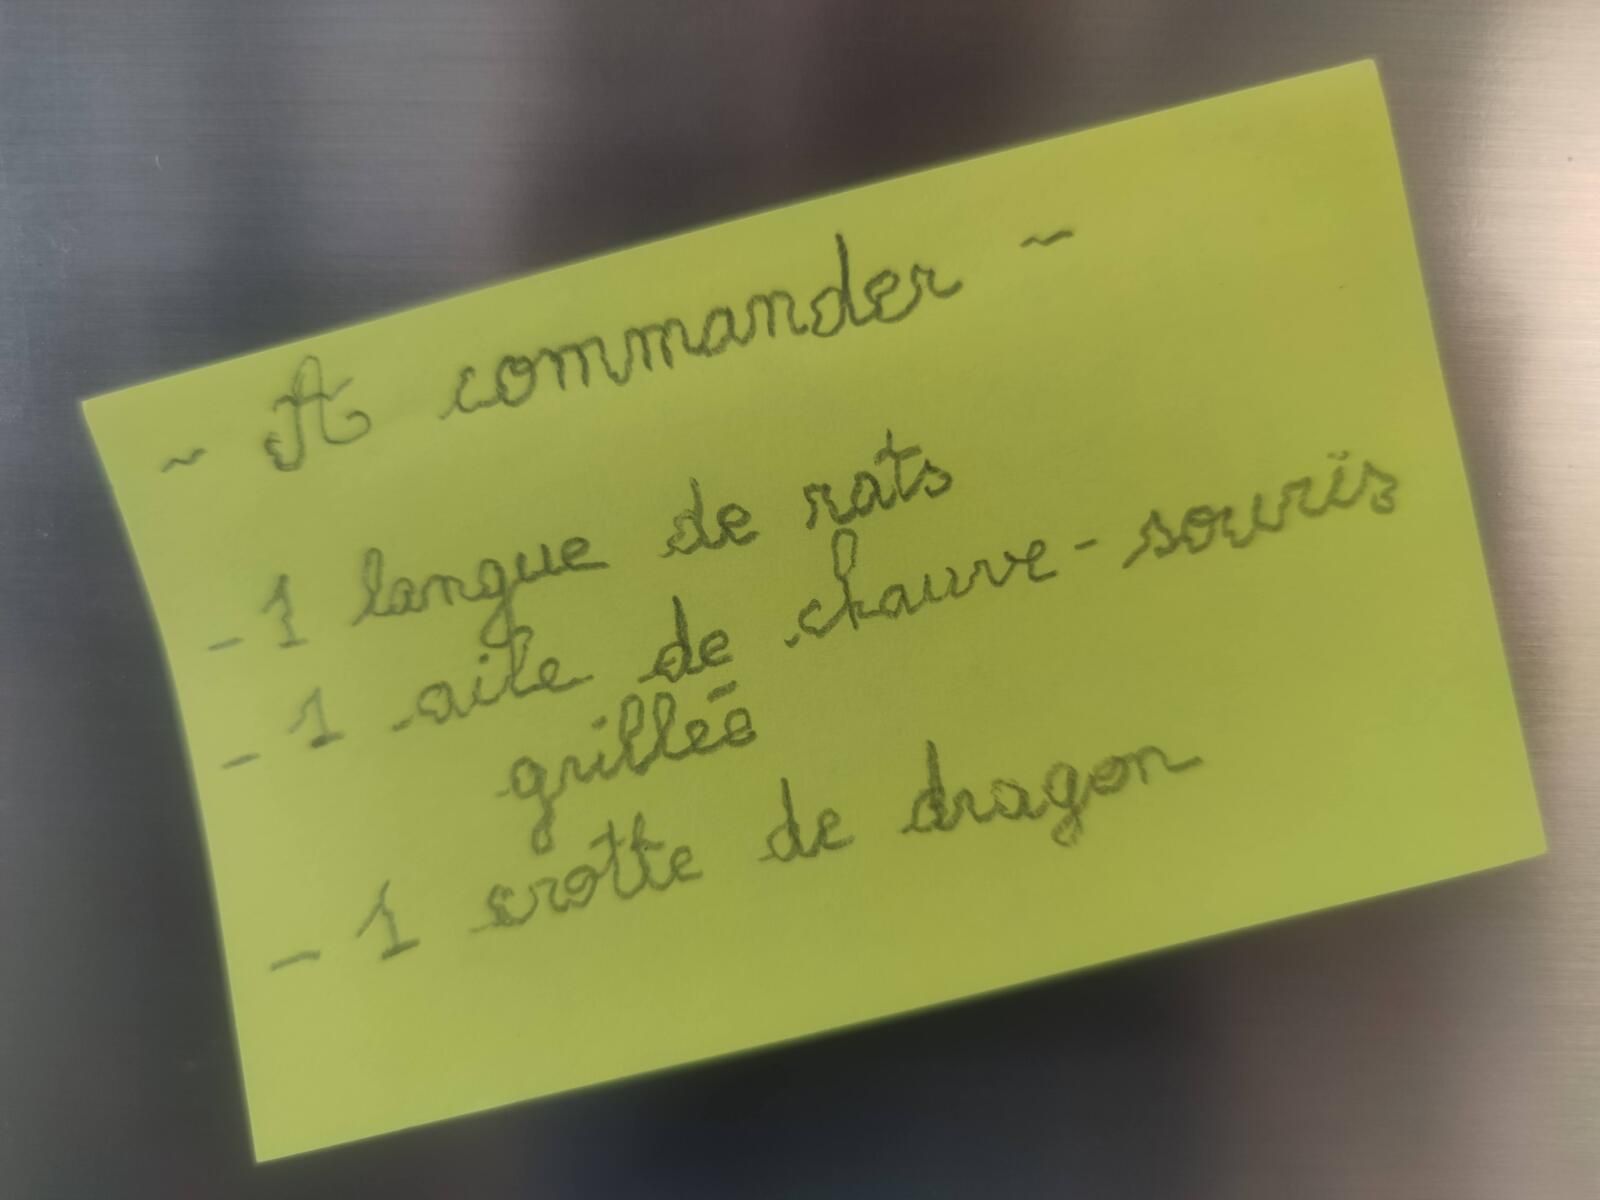 ~ A commander ~
- 1 langue de rats
- 1 aile de chauve-souris
grillée
- 1 crotte de dragon